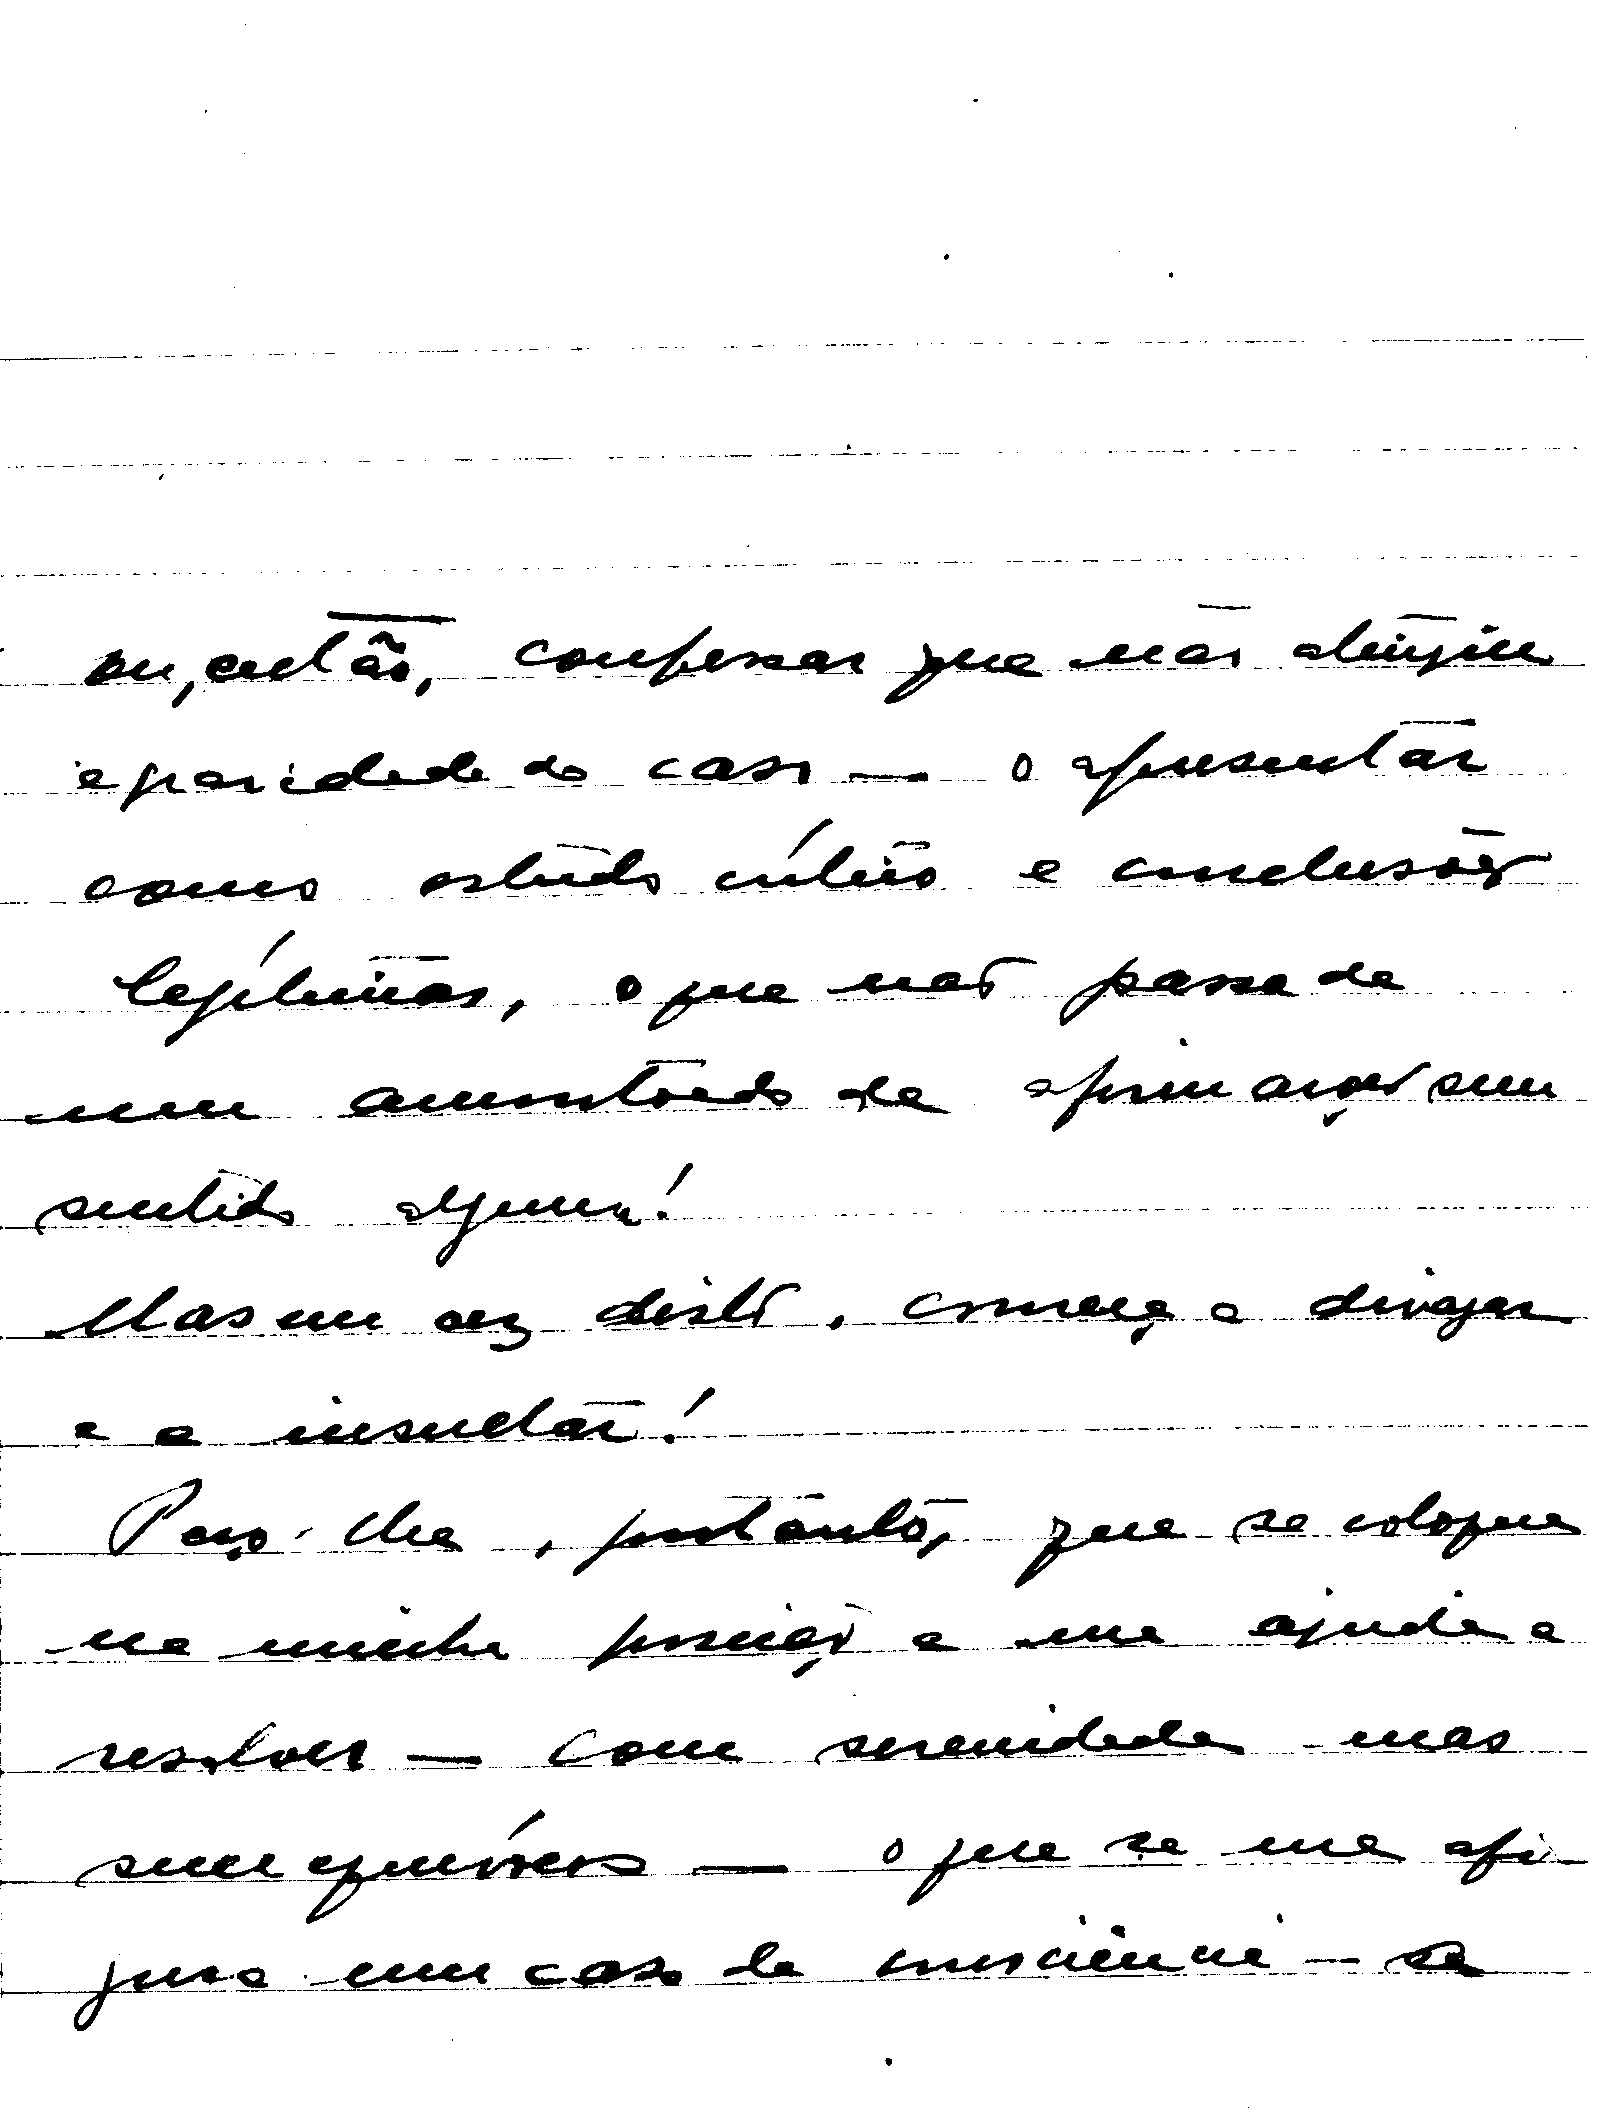 ou, então, confessar que não atingiu
a paridade do caso — o apresentar
como estudo crítico e conclusões
legítimas, o que não passa de
um amontoado de afirmações sem
sentido algum!
Mas em vez disto, começa a divagar
e a insultar!
Peço-lhe, portanto, que se coloque
na minha posição e me ajude a
resolver — com serenidade mas
sem equívocos — o que se me afi-
gura um caso de consciência — se